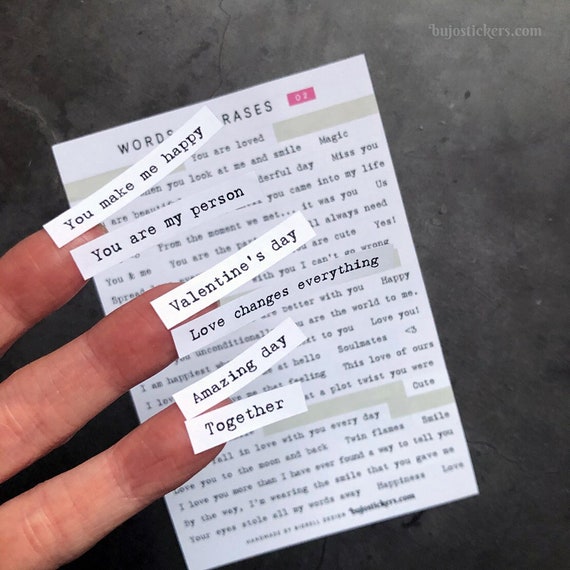 bujostickers.com
WORDS RASES 02
You make me happy
You are loved Magic
when you look at me and smile Miss you
derful day you came into my life
You are my person
From the moment we met... it was you Us
You & me You are the ll always need
Valentine's day
you are cute Yes!
Spread with you I can't go wrong
Love changes everything
better with you Happy
you unconditionally are the world to me.
I am happiest to you Love you!
Amazing day
at hello Soulmates <3
I lov me that feeling This love of ours
Together
at a plot twist you were
Cute
all in love with you every day Smile
Love you to the moon and back Twin flames
I love you more than I have ever found a way to tell you
By the way, I'm wearing the smile that you gave me
Your eyes stole all my words away Happiness Love
HANDMADE BY BIRRELL DESIGN bujostickers.com